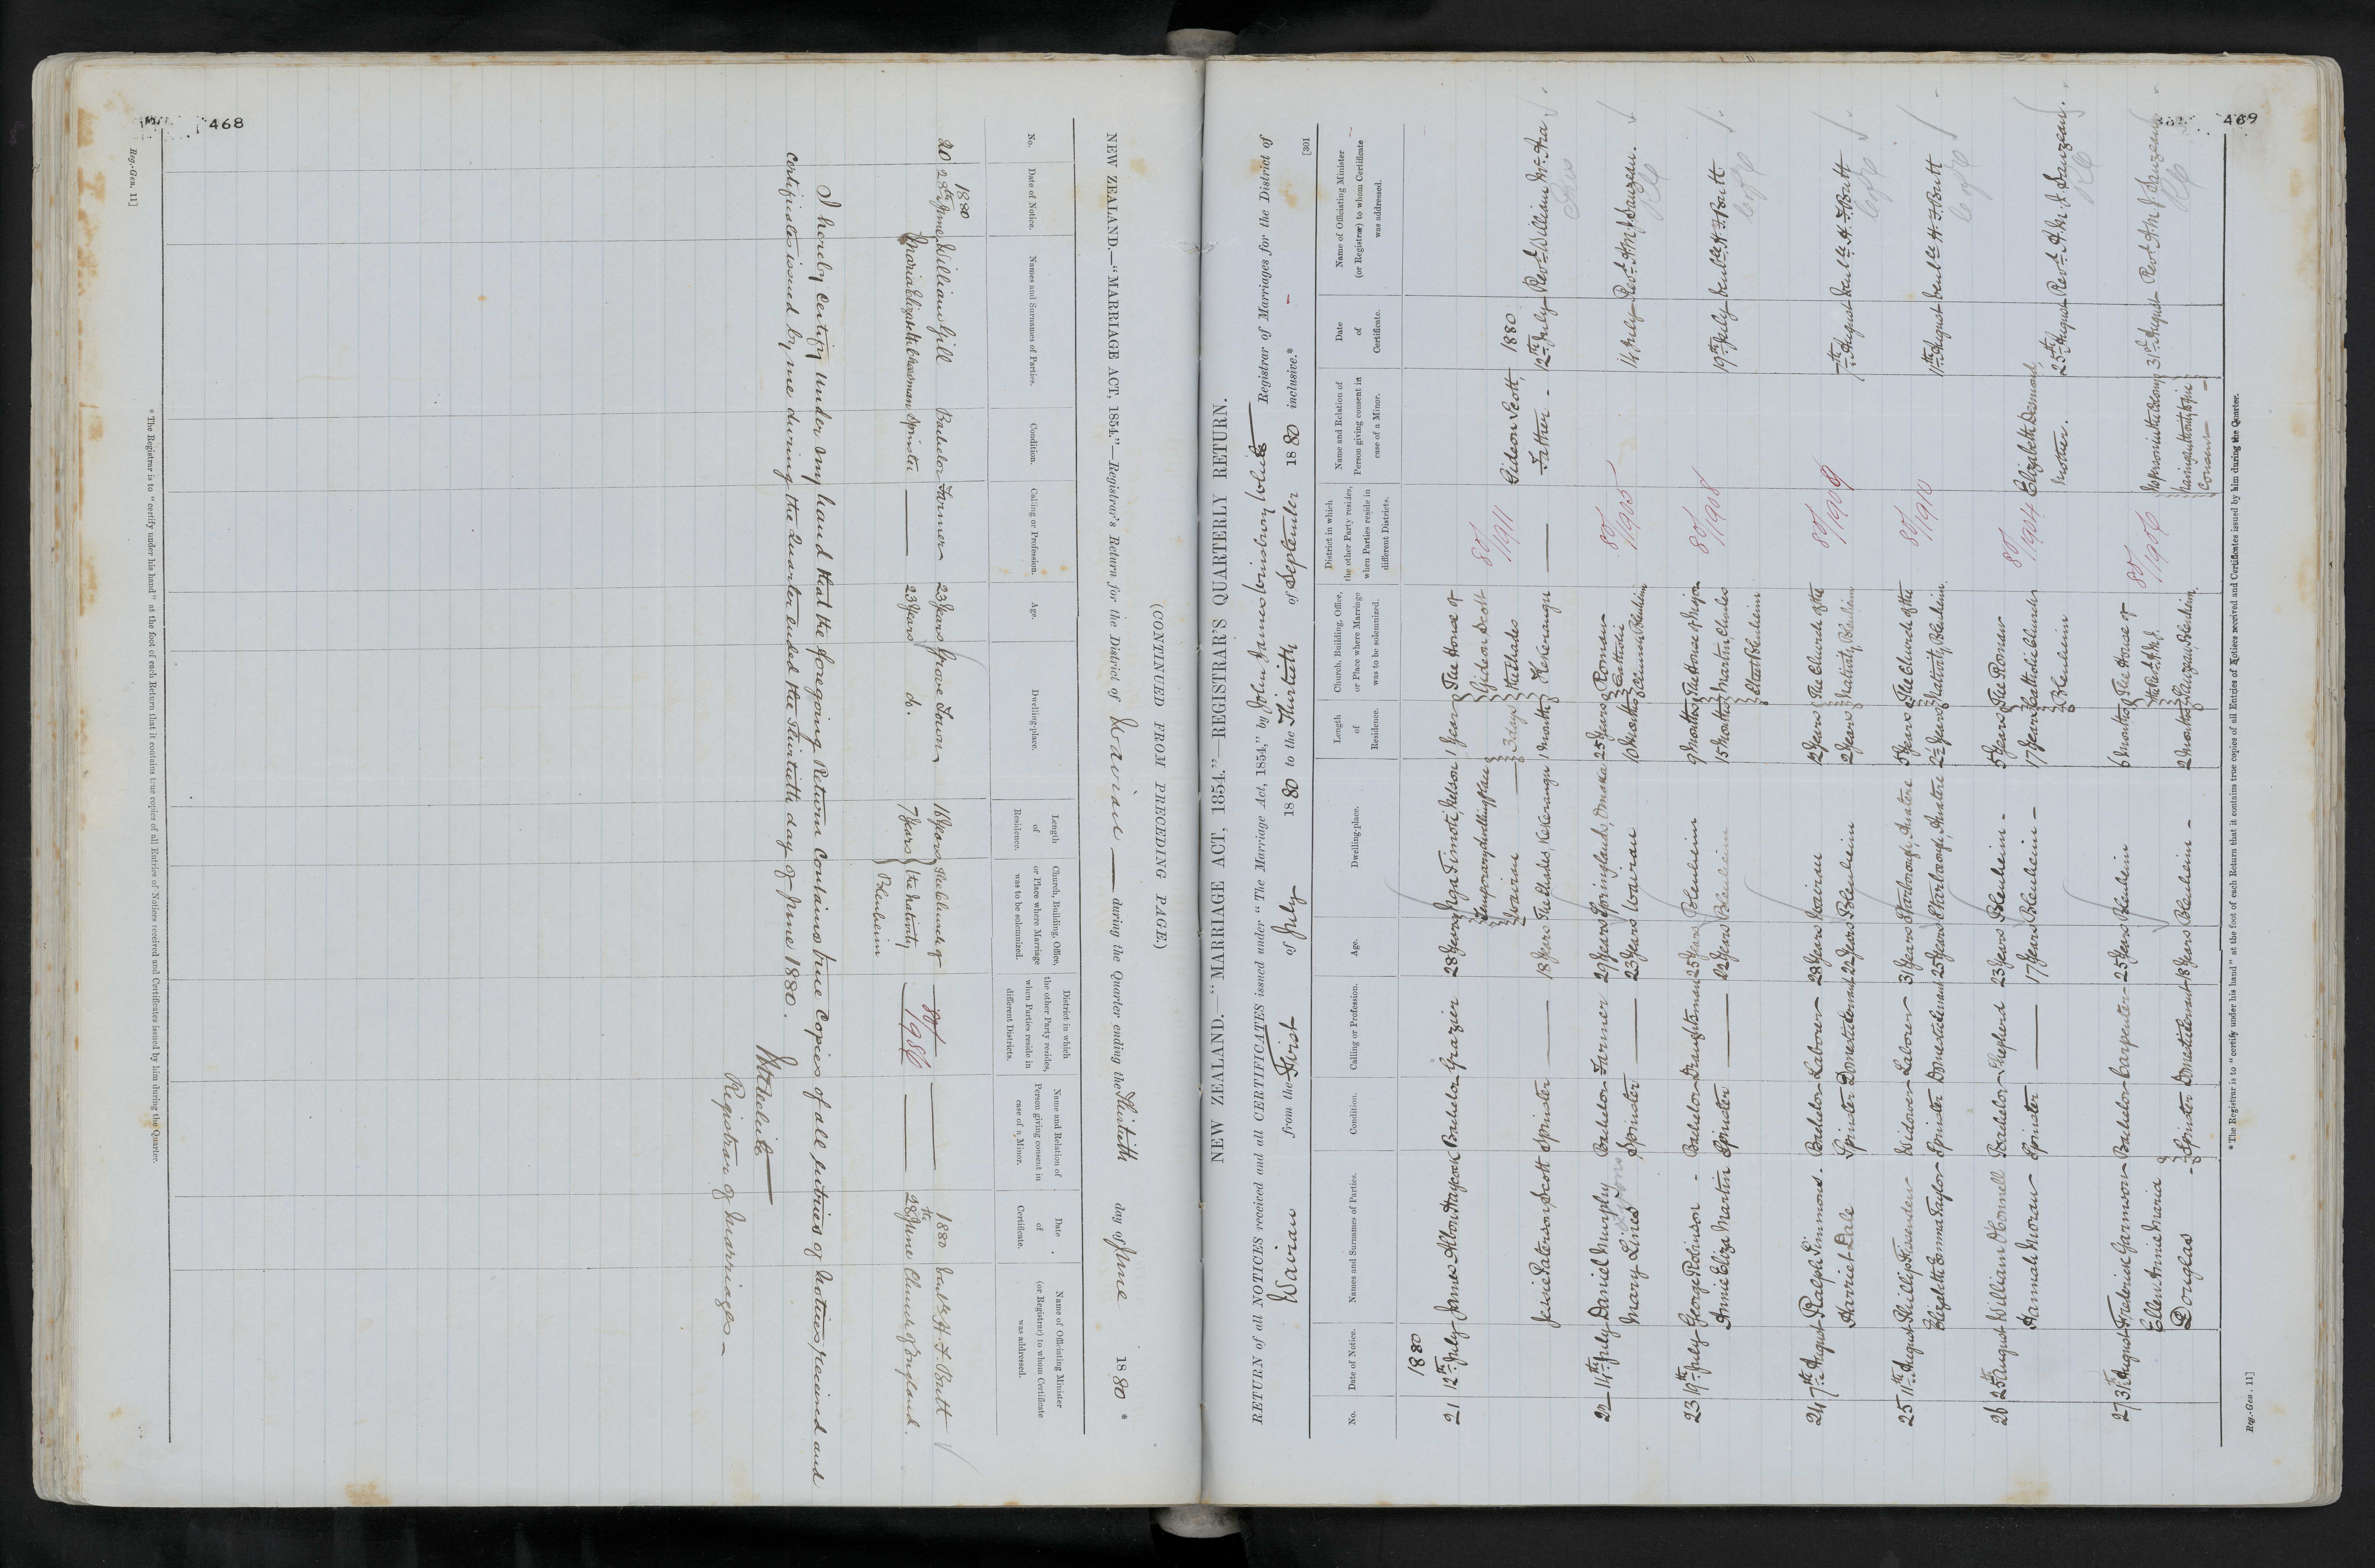 468
(CONTINUED FROM PRECEDING PAGE.)
NEW ZEALAND.—"MARRIAGE ACT, 1854."—Registrar's Return for the District of Wairau during the Quarter ending the Thirtieth day of June 1880 *
No.
Date of Notice.
Names and Surnames of Parties.
Condition.
Calling or Profession.
Age.
Dwelling-place.
Length of Residence.
Church, Building, Office, or Place where Marriage was to be solemnized.
District in which the other Party resides, when Parties reside in different Districts.
Name and Relation of Person giving consent in case of a Minor.
Date of Certificate.
Name of Officiating Minister (or Registrar) to whom Certificate was addressed.
1880 1880
20 28th June William Gill Bachelor Farmer 23 Years Grove Town 16 Years The Church of 80/1986 Ven'ble H. F. Butt
Maria Elizabeth Cheesman Spinster 23 Years do. 7 Years the Nativity 28th June Church of England.
Blenheim
I hereby certify under my hand that the foregoing Return contains true Copies of all Entries of Notices received and
Certificates issued by me during the Quarter ended the Thirtieth day of June 1880.
Registrar of Marriages —
* The Registrar is to "certify under his hand" at the foot of each Return that it contains true copies of all Entries of Notices received and Certificates issued by him during the Quarter.
Reg.-Gen. 11]
469
[301
NEW ZEALAND.—"MARRIAGE ACT, 1854."—REGISTRAR'S QUARTERLY RETURN.
RETURN of all NOTICES received and all CERTIFICATES issued under "The Marriage Act, 1854," by John James White Registrar of Marriages for the District of
Wairau from the First of July 1880 to the Thirtieth of September 1880 inclusive.*
No.
Date of Notice.
Names and Surnames of Parties.
Condition.
Calling or Profession.
Age.
Dwelling-place.
Length of Residence.
Church, Building, Office, or Place where Marriage was to be solemnized.
District in which the other Party resides, when Parties reside in different Districts.
Name and Relation of Person giving consent in case of a Minor.
Date of Certificate.
Name of Officiating Minister (or Registrar) to whom Certificate was addressed.
1880
21 12th July James Albon Haycock Bachelor Grazier 28 Years Nga Timoti, Nelson 1 Year The House of
temporary dwelling place 3 days Gideon Scott 80/1911
Wairau the Chudes Gideon Scott, 1880
Jessie Paterson Scott Spinster 18 Years The Chudes, Kekerangu 1 Month Kekerangu Father 12th July Revd. William
22 14th July Daniel Murphy Bachelor Farmer 29 Years Springlands, Omaka 25 Years Roman 80/1905
Mary Lines Spinster 23 Years Wairau 10 Months Catholic Church Blenheim 14 July Revd. A. M. J. Sauzeau.
23 19th July George Robinson Bachelor Draughtsman 25 Years Blenheim 9 Months The House of Major 80/1908
Annie Eliza Martin Spinster 22 Years Blenheim 15 Months Martin, Eltest Blenheim 19th July Ven'ble H. F. Butt
24 7th August Ralph Simmons. Bachelor Laborer 28 Years Wairau 12 Years The Church of the 80/1909
Harriet Dale Spinster Domestic Servant 22 Years Blenheim 2 Years Nativity, Blenheim 7th August Ven'ble H. F. Butt
25 11th August Phillip Fissenden Widower Laborer 31 Years Starborough, Awatere 5 Years The Church of the 80/1910
Elizabeth Emma Taylor Spinster Domestic Servant 25 Years Starborough, Awatere 2½ Years Nativity, Blenheim. 11th August Ven'ble H. F. Butt
26 25th August William O'Connell Bachelor Shepherd 23 Years Blenheim 5 Years The Roman 80/1904 Elizabeth Desmond,
Hannah Moran Spinster 17 Years Blenheim 17 Years Catholic Church Blenheim Mother. 25th August Revd. A. M. J. Sauzeau.
27 31st August Frederick Garmson Bachelor Carpenter 25 Years Blenheim 6 Months The House of 80/1906 No person in the Colony 31st August Revd. A. M. J. Sauzeau
Ellen Annie Maria the Revd. A. M. J. having authority to give
Douglas Spinster Domestic Servant 18 Years Blenheim 2 Months Sauzeau, Blenheim. Consent
* The Registrar is to "certify under his hand" at the foot of each Return that it contains true copies of all Entries of Notices received and Certificates issued by him during the Quarter.
Reg.-Gen. 11]